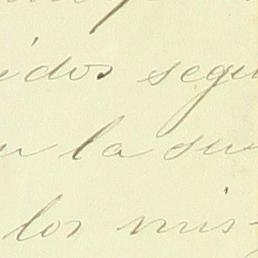 idos segu
la su
los mis-